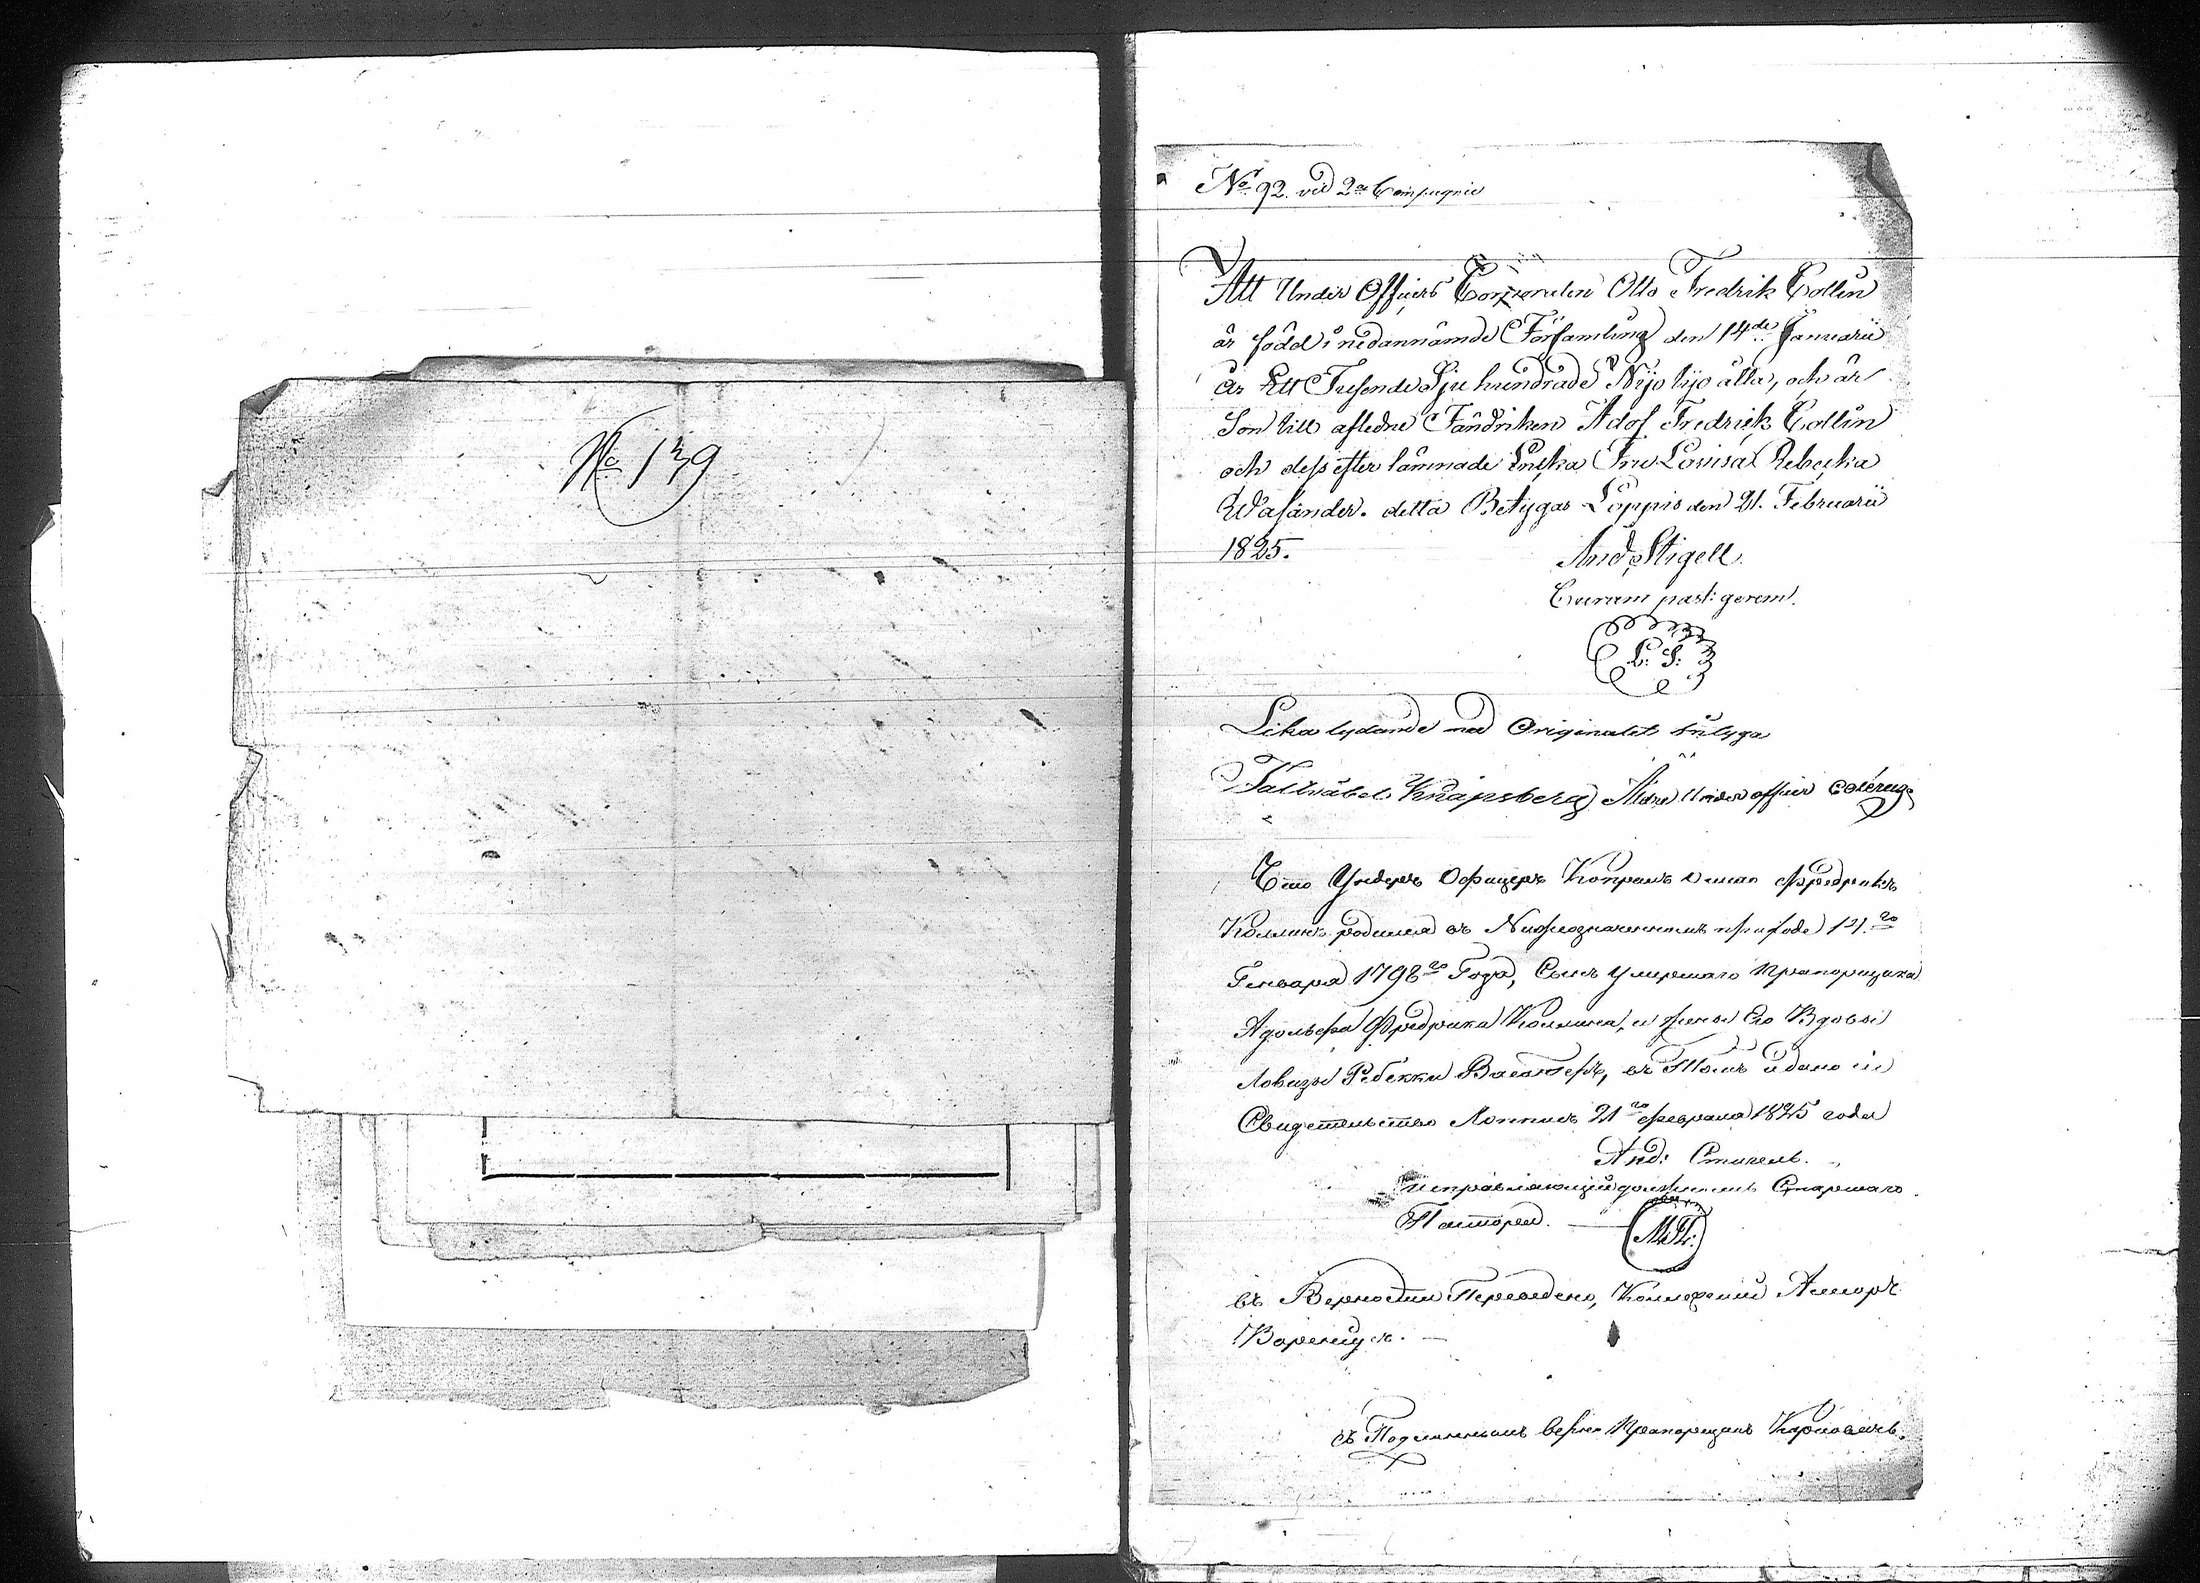 No 139
No 92. vid 2a Compagnie
Att Under Officers Corporalen Otto Fredrik Collin
är född i nedannämde Församling den 14de Januarii
år Ett Tusende Sju hundrade Nijo tijo åtta, och är
Son till afledne Fändriken Adof Fredrik Collin
och dess efter lämnade Enka Fru Lovisa Rebecka
Wasander. detta Betygas Loppis den 21. Februarii
1825.
And. Stigell.
Curam past: gerens.
L: S:
Lika lydande med Originalet betyga
Fältväbel Knapsberg Äldre Under officer
Что Ундеръ Офицеръ Копралъ Отто Фредрикъ
Коллинъ родился въ Нижеозначенномъ приходе 14.го
Генваря 1798го Года, Сынъ умершаго Прапорщика
Адольфа Фредрика Коллина, и жены Его Вдовы
Ловизы Ребекки Васандеръ, въ Томъ и дано сіе
Свидетельство Лопписъ 21го февраля 1825 года
Анд: Стигель.
исправляющій должность Старшаго
Пастора.
М.П.
въ Верности Переведено, Коллежскій Ассоръ
съ Подлиннымъ верно Прапорщикъ